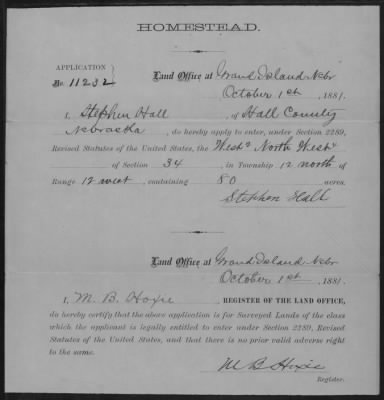 HOMESTEAD.
APPLICATION
No. 11232
Land Office at Grand Island Nebr
October 1st, 1881.
I, Stephen Hall, of Hall County
Nebraska, do hereby apply to enter, under Section 2289,
Revised Statutes of the United States, the West ½ North West ¼
of Section 34, in Township 12 north of
Range 12 west, containing 80 acres.
Stephen Hall
Land Office at Grand Island Nebr
October 1st, 1881.
I, M. B. Hoxie, REGISTER OF THE LAND OFFICE,
do hereby certify that the above application is for Surveyed Lands of the class
which the applicant is legally entitled to enter under Section 2289, Revised
Statutes of the United States, and that there is no prior valid adverse right
to the same.
M B Hoxie
Register.